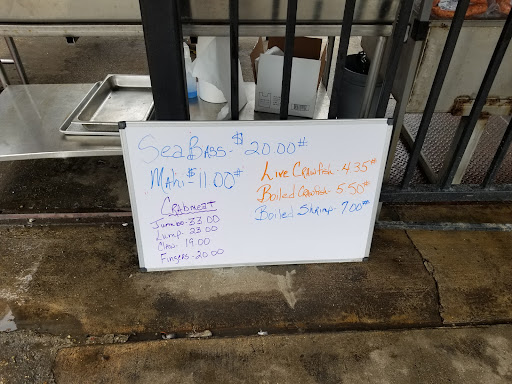 Sea Bass - $20.00#
Mahi - $11.00#
Crabmeat
Jumbo - 33.00
Lump - 23.00
Claw - 19.00
Fingers - 20.00
Live Crawfish - 4.35#
Boiled Crawfish - 5.50#
Boiled Shrimp - 7.00#